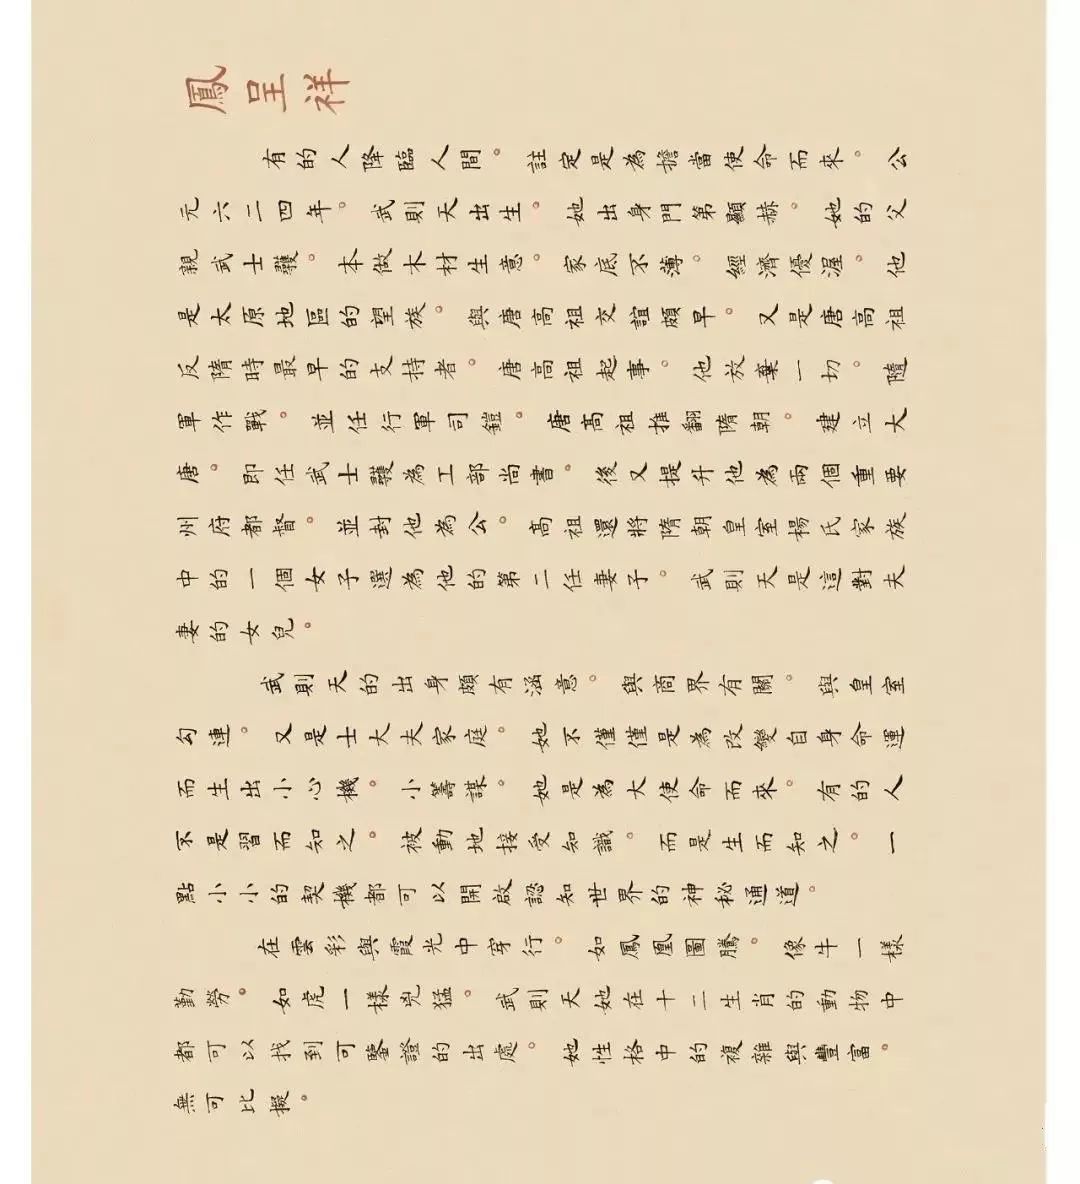 鳳呈祥
有的人降臨人間。註定是為擔當使命而來。公
元六二四年。武則天出生。她出身門第顯赫。她的父
親武士彠。本做木材生意。家底不薄。經濟優渥。他
是太原地區的望族。與唐高祖交誼頗早。又是唐高祖
反隋時最早的支持者。唐高祖起事。他放棄一切。隨
軍作戰。並任行軍司鎧。唐高祖推翻隋朝。建立大
唐。即任武士彠為工部尚書。後又提升他為兩個重要
州府都督。並封他為公。高祖還將隋朝皇室楊氏家族
中的一個女子選為他的第二任妻子。武則天是這對夫
妻的女兒。
武則天的出身頗有涵意。與商界有關。與皇室
勾連。又是士大夫家庭。她不僅僅是為改變自身命運
而生出小心機。小籌謀。她是為大使命而來。有的人
不是習而知之。被動地接受知識。而是生而知之。一
點小小的契機都可以開啟認知世界的神秘通道。
在雲彩與霞光中穿行。如鳳凰圖騰。像牛一樣
勤勞。如虎一樣兇猛。武則天她在十二生肖的動物中
都可以找到可鑒證的出處。她性格中的複雜與豐富。
無可比擬。